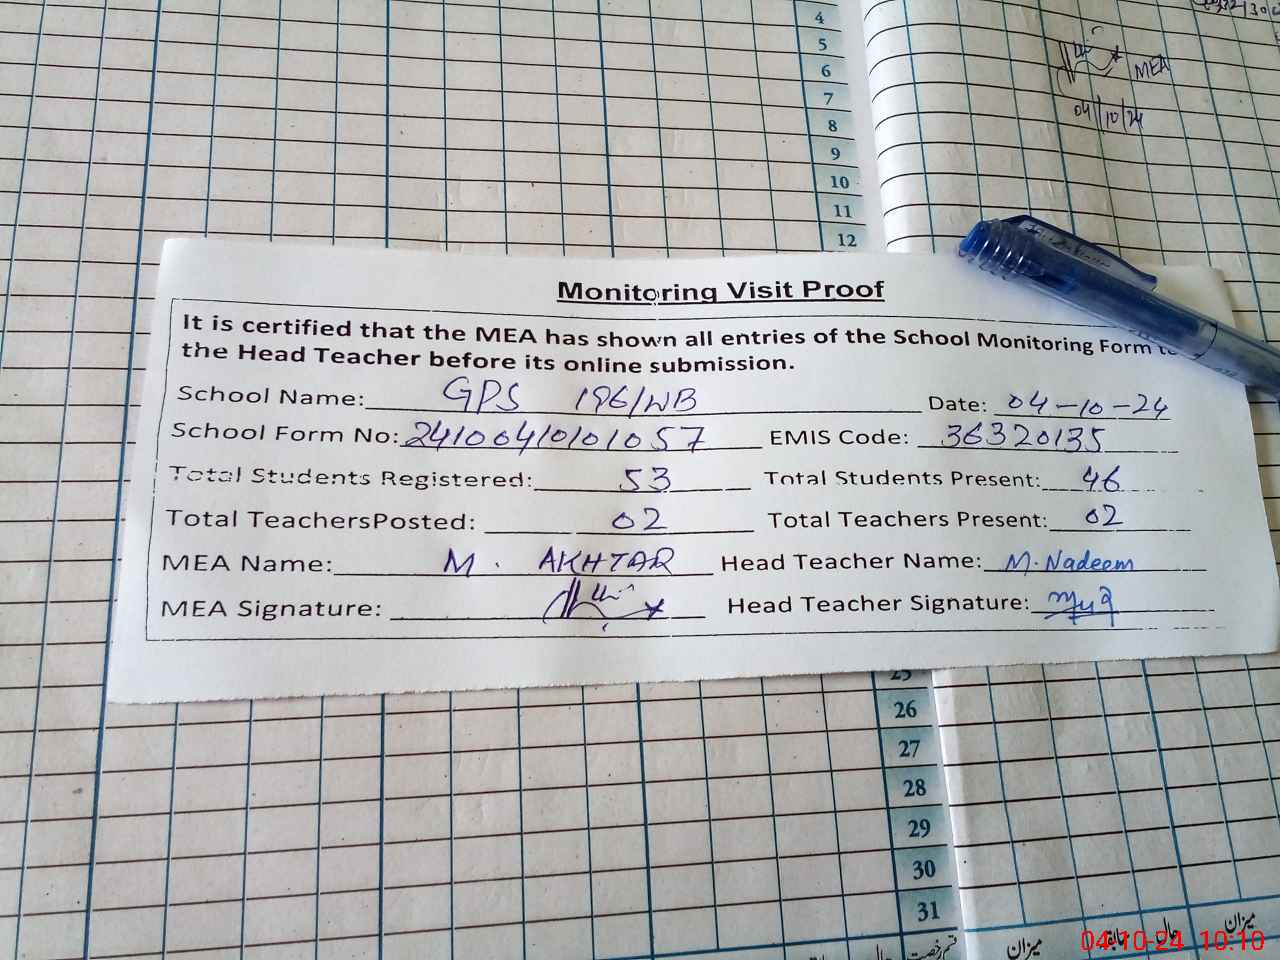 4
5
6
7
8
9
10
11
12
MEA
04/10/24
Monitoring Visit Proof
It is certified that the MEA has shown all entries of the School Monitoring Form to
the Head Teacher before its online submission.
School Name: GPS 196/WB Date: 04-10-24
School Form No: 2410040101057 EMIS Code: 36320135
Total Students Registered: 53 Total Students Present: 46
Total TeachersPosted: 02 Total Teachers Present: 02
MEA Name: M. AKHTAR Head Teacher Name: M. Nadeem
MEA Signature: Head Teacher Signature:
25
26
27
28
29
30
31
میزان حال میزان
04-10-24 10:10